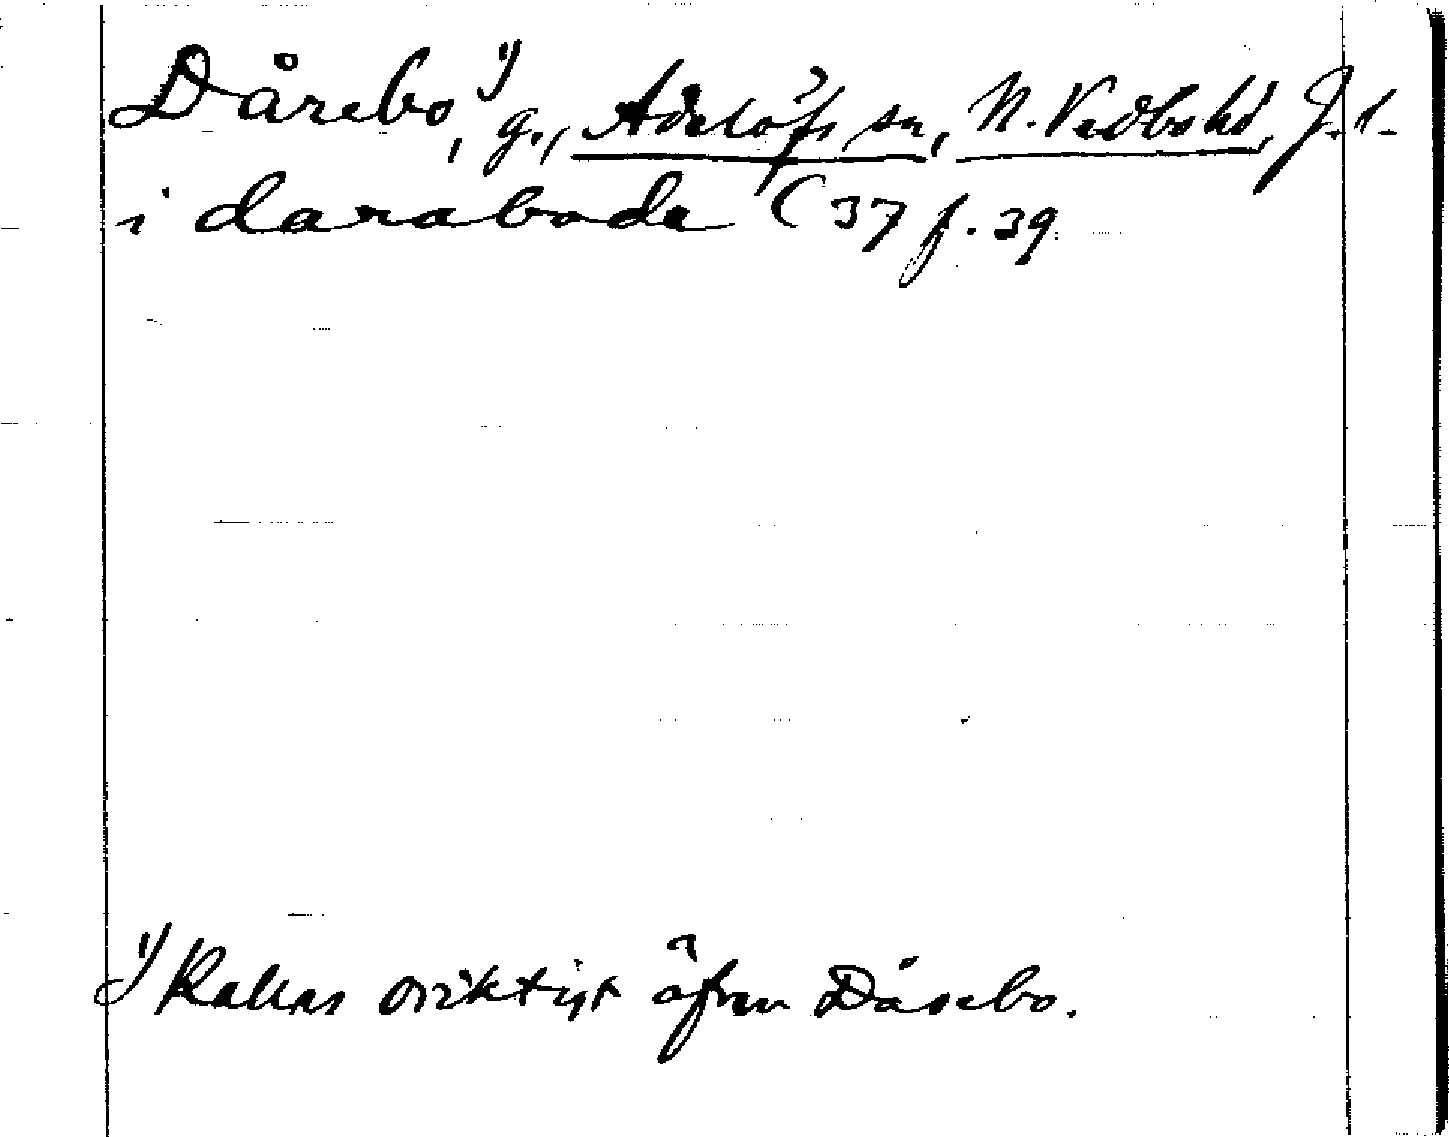 Dårebo¹⁾, g., Adelöfs sn, N. Vedbo hd, J. l.
i darabode C 37 f. 39
¹⁾ Kallas oriktigt äfven Dåsebo.